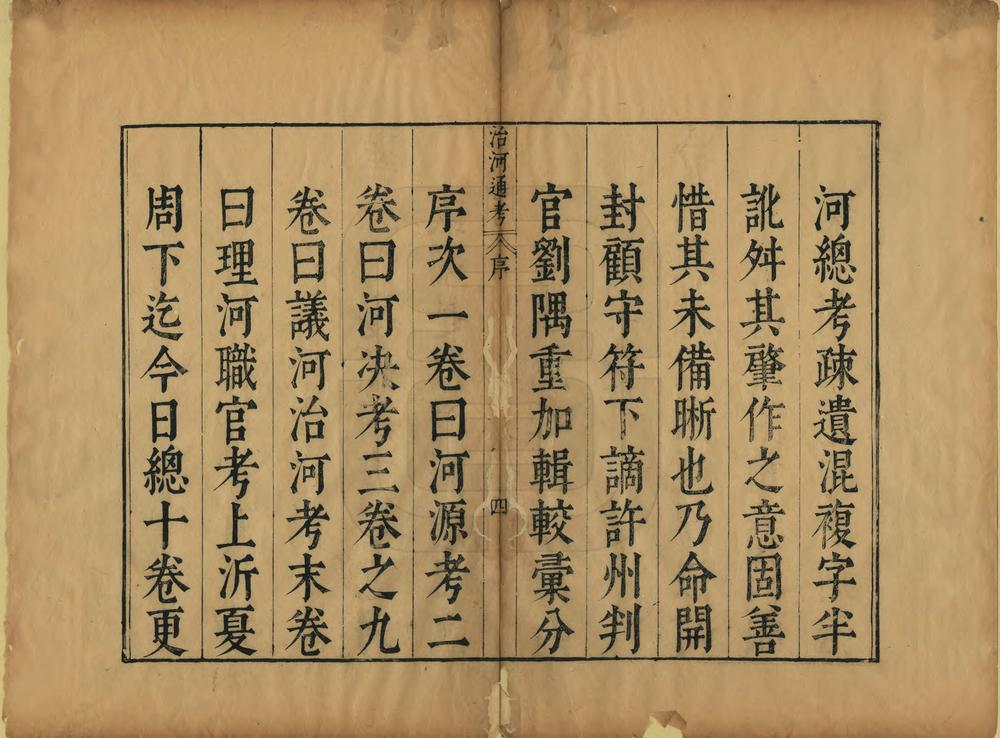 河總考疎遺混複字半
訛舛其肇作之意固善
惜其未備晰也乃命開
封顧守符下謫許州判
官劉隅重加輯較彙分
治河通考
序
四
序次一卷曰河源考二
卷曰河决考三卷之九
卷曰議河治河考末卷
曰理河職官考上泝夏
周下迄今日總十卷更